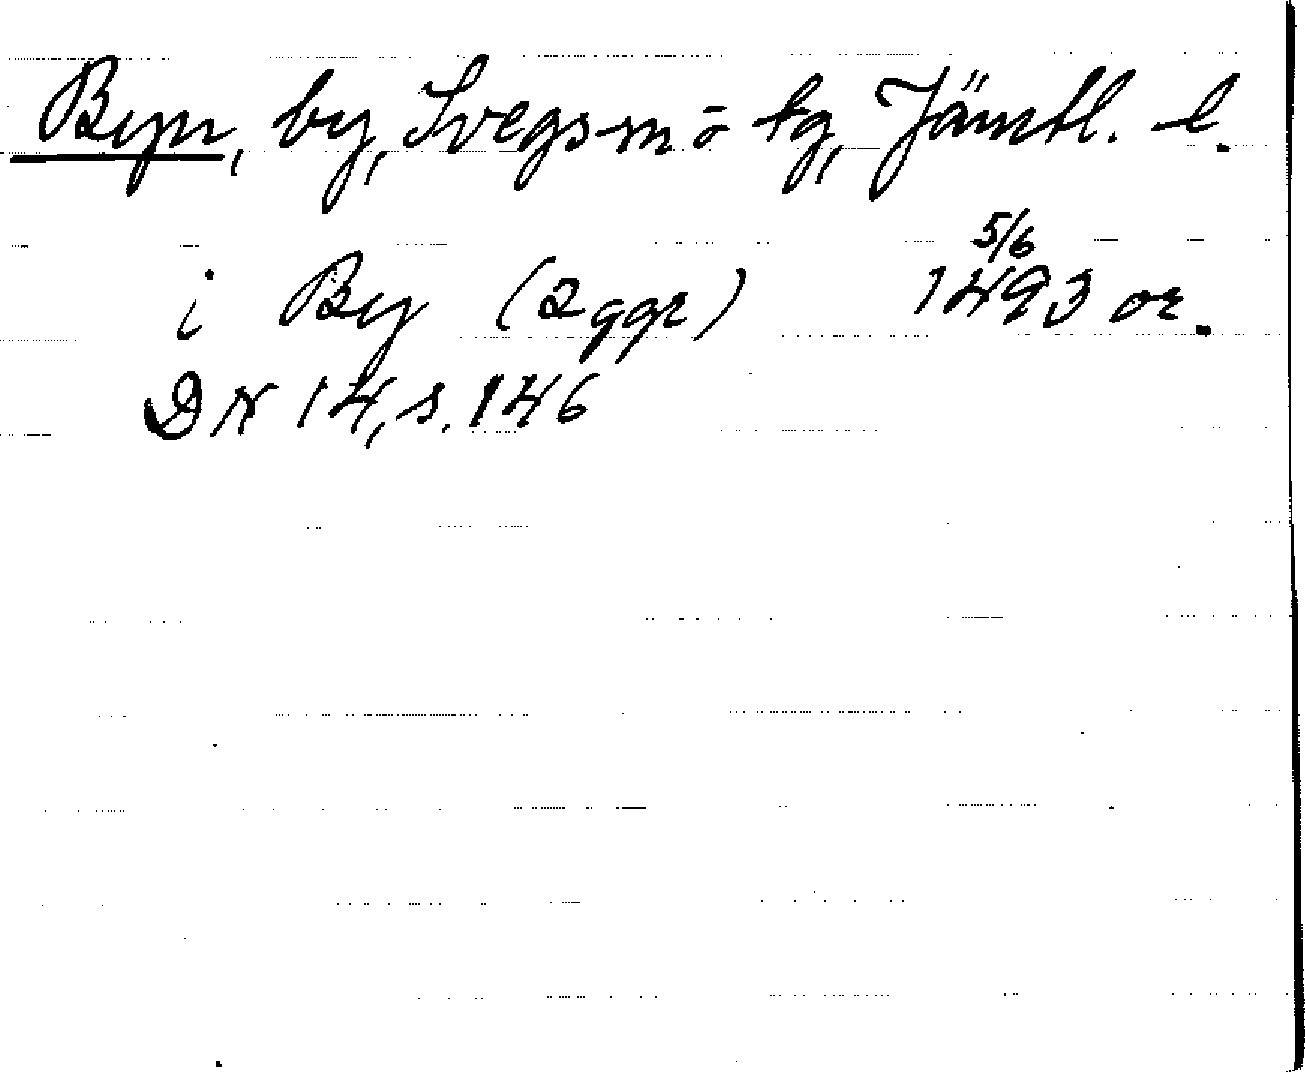 Byn, by, Svegs sn o tg, Jämtl. l.
i By (2 ggr) 5/6 1493 or.
DN 14, s. 146